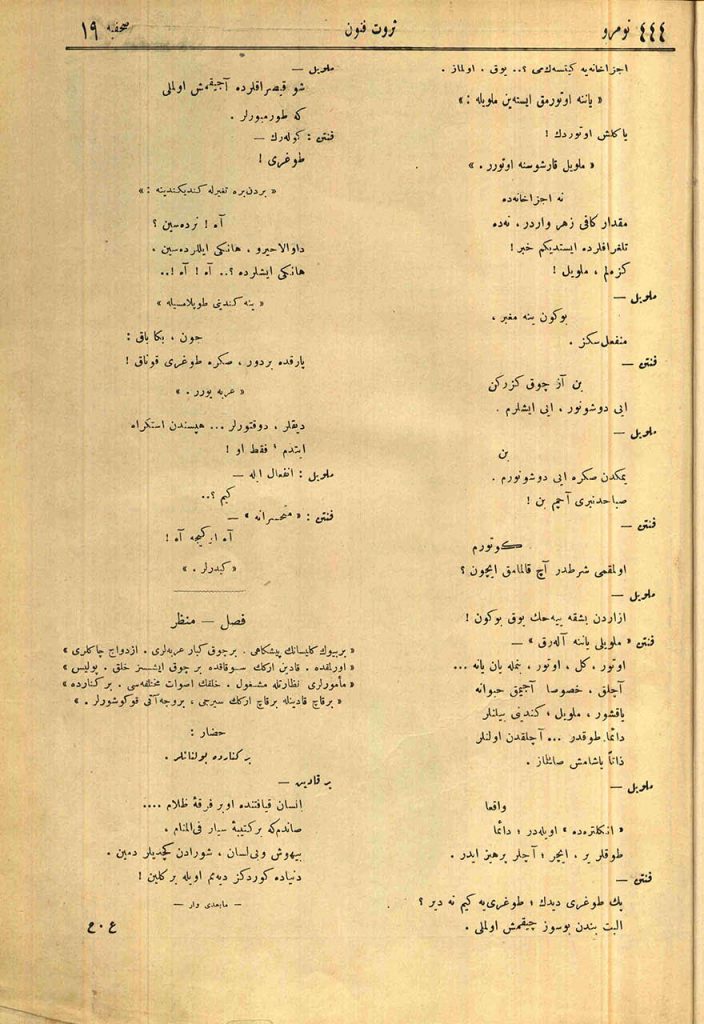 ٤٤٤ نومرو
ثروت فنون
صحيفه ١٩
اجزاخانه‌يه كيتسه‌ك‌می ؟.. يوق ، اولماز .
« ياننه اوتورمق ايسته‌ين ملويله : »
ياكلش اوتوردك !
« ملويل قارشوسنه اوتورر . »
نه اجزاخانه‌ده
مقدار كافی زهر واردر ، نه‌ده
تلغرافلرده ايستديكم خبر !
كزه‌لم ، ملويل !
ملويل —
بوكون ينه مغبر ،
منفعل‌سكز .
فنتن —
بن آز چوق كزركن
ايی دوشونور ، ايی ايشلرم .
ملويل —
بن
يمكدن صكره ايی دوشونورم .
صباحدنبری آچم بن !
فنتن —
كوتورم
اولمقمی شرطدر آچ قالمامق ايچون ؟
ملويل —
ازاردن بشقه ييه‌جك يوق بوكون !
فنتن « ملويلی ياننه آله‌رق » —
اوتور ، كل ، اوتور ، بنمله يان يانه ...
آچلق ، خصوصا آجيمق حيوانه
ياقشور ، ملويل ؛ كندينی بيلنلر
دائما طوقدر ... آچلقدن اولنلر
ذاتاً ياشامش صايلماز .
ملويل —
واقعا
« انكلتره‌ده » اويله‌در ؛ دائما
طوقلر ير ، ايچر ؛ آچلر پرهيز ايدر .
فنتن —
پك طوغری ديدك ؛ طوغری‌يه كيم نه دير ؟
البت بندن بوسوز چيقمش اولملی .
ملويل —
شو قيصراقلرده آجيقمش اولملی
كه طورمبورلر .
فنتن : كوله‌رك —
طوغری !
« بردن‌بره تغيرله كنديكندينه : »
آه ! نرده‌سين ؟
داوالاجيرو ، هانكی ايللرده‌سين ،
هانكی ايشلرده ؟.. آه ! آه !..
« ينه كندينی طوپلامسيله »
جون ، بكا باق :
پارقده بردور ، صكره طوغری قوناق !
« عربه يورر . »
ديقلر ، دوقتورلر ... هپسندن استكراه
ايتدم ؛ فقط او !
ملويل : انفعال ايله —
كيم ؟..
فنتن : « متحسرانه » —
آه او كيجه آه !
« كيدرلر . »
فصل — منظر
« بربيوك كليسانك پيشكاهی . برچوق كبار عربه‌لری . ازدواج چاكلری »
« اورلقده . قادين اركك سوقاقده بر چوق ايشسز خلق . پوليس »
« مأمورلری نظارتله مشغول . خلقك اصوات مختلفه‌سی . بركنارده »
« برقاچ قادينله برقاچ اركك سيرجی ، بروجه‌آتی قوكوشورلر . »
حضار :
بركنارده بولنانلر .
بر قادين —
انسان قيافتنده اوبر فرقهٔ ظلام ....
صاندم‌كه بركتيبهٔ سيار فی‌المنام ،
بيهوش وبی‌لسان ، شورادن كچديلر دمين .
دنياده كوردكز ديه‌م اويله بركلين !
— مابعدی وار —
ع . ح